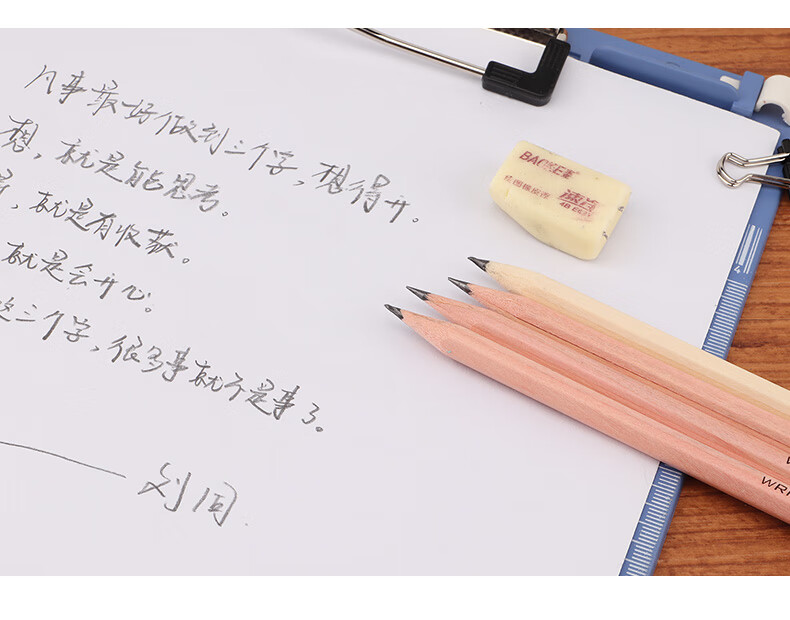 凡事最好做到三个字，想得开。
想，就是能思考。
，就是有收获。
就是会开心。
三个字，很多事就不是事了。
——刘同
BAOKE宝克
绘图橡皮擦
4B
4
WRI